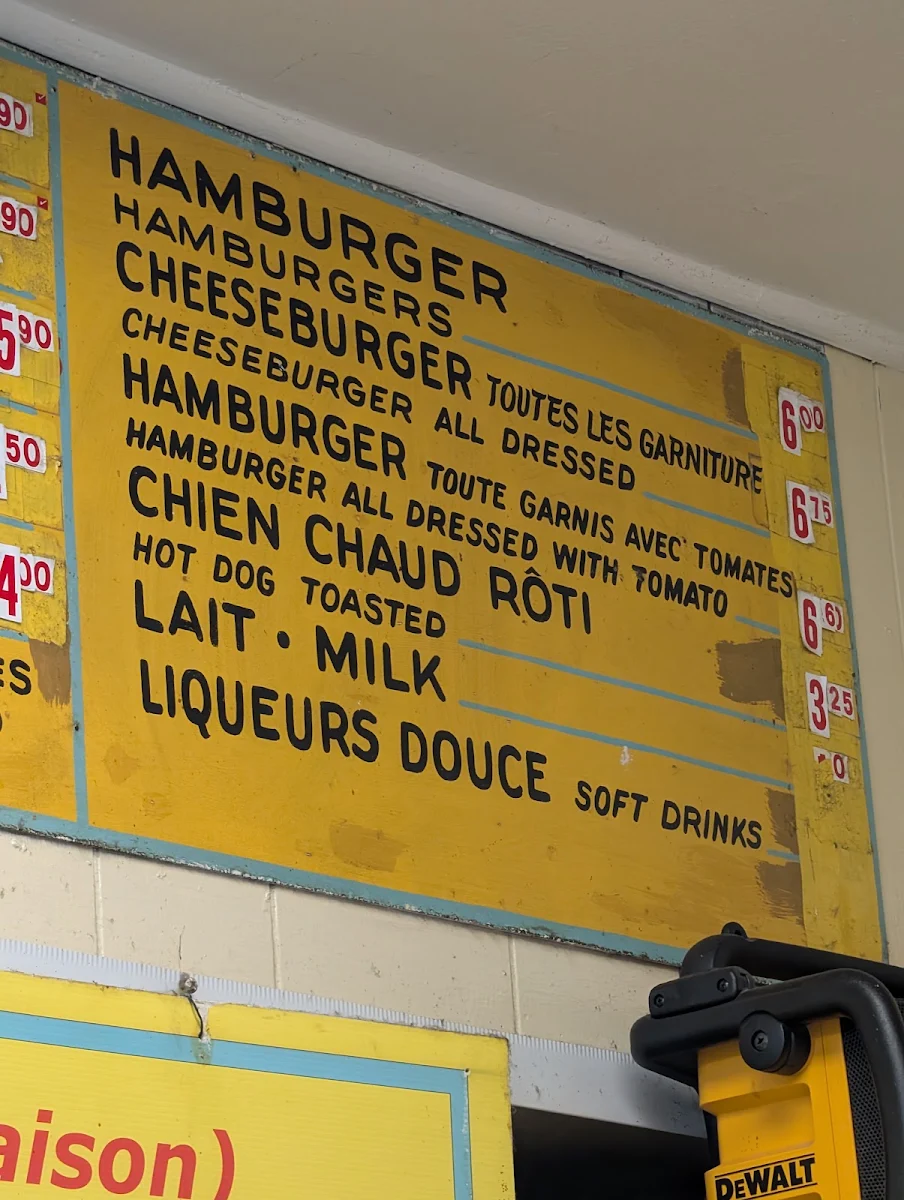 90
90
5 90
50
4 00
ES
HAMBURGER
HAMBURGERS 6 00
CHEESEBURGER TOUTES LES GARNITURE
CHEESEBURGER ALL DRESSED 6 75
HAMBURGER TOUTE GARNIS AVEC TOMATES
HAMBURGER ALL DRESSED WITH TOMATO 6 60
CHIEN CHAUD RÔTI
HOT DOG TOASTED 3 25
LAIT • MILK
LIQUEURS DOUCE SOFT DRINKS
aison)
DEWALT